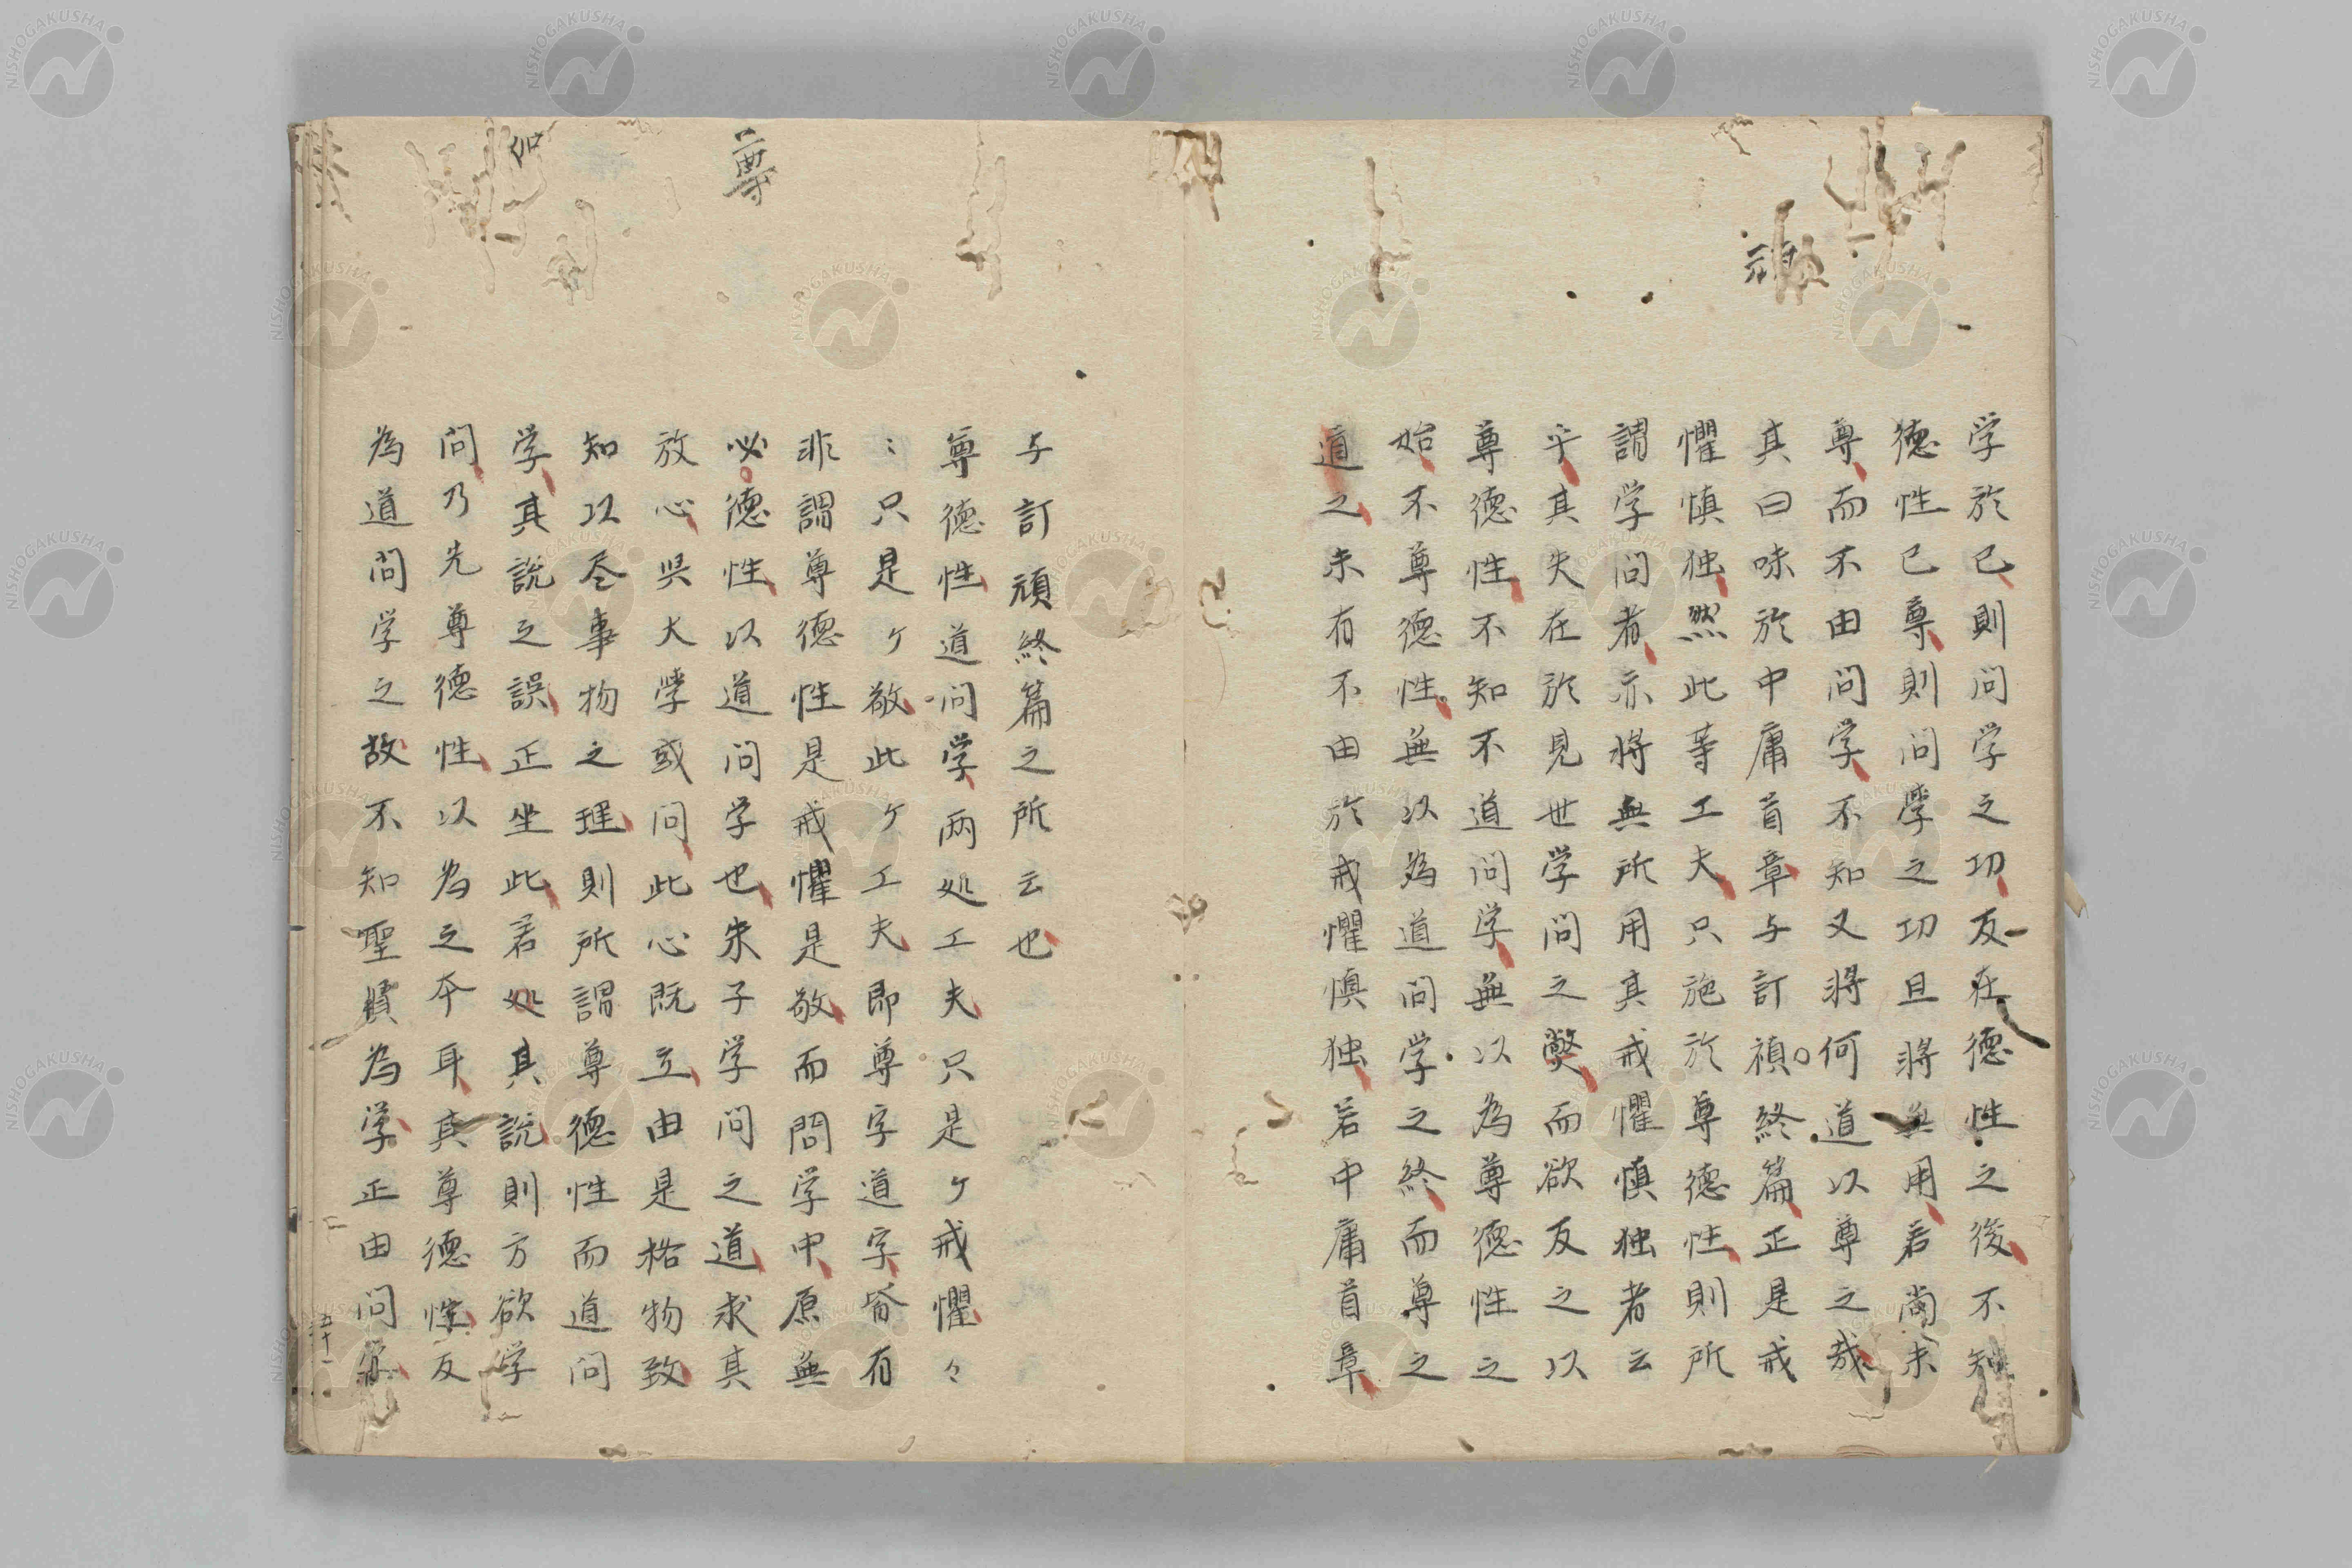 学於己則問学之功反在德性之後不知
德性已尊則問学之功且將無用若尚未
尊而不由問学不知又將何道以尊之哉
其曰味於中庸首章与訂禎終篇正是戒
懼慎独然此等工夫只施於尊德性則所
謂学問者亦將無所用其戒懼慎独者云
乎其失在於見世学問之獘而欲反之以
尊德性不知不道問学無以為尊德性之
始不尊德性無以為道問学之終而尊之
道之未有不由於戒懼慎独若中庸首章
与訂頑終篇之所云也
尊德性道問学両処工夫只是ケ戒懼々
〻只是ケ敬此ケ工夫即尊字道字育有
非謂尊德性是戒懼是敬而問学中原無
必德性以道問学也朱子学問之道求其
放心與大学或問此心既立由是格物致
知以尽事物之理則所謂尊德性而道問
学其説之誤正坐此若処其説則方欲学
問乃先尊德性以為之本耳真尊德性反
為道問学之故不知聖賢為学正由問学
尊
五十一
NISHOGAKUSHA